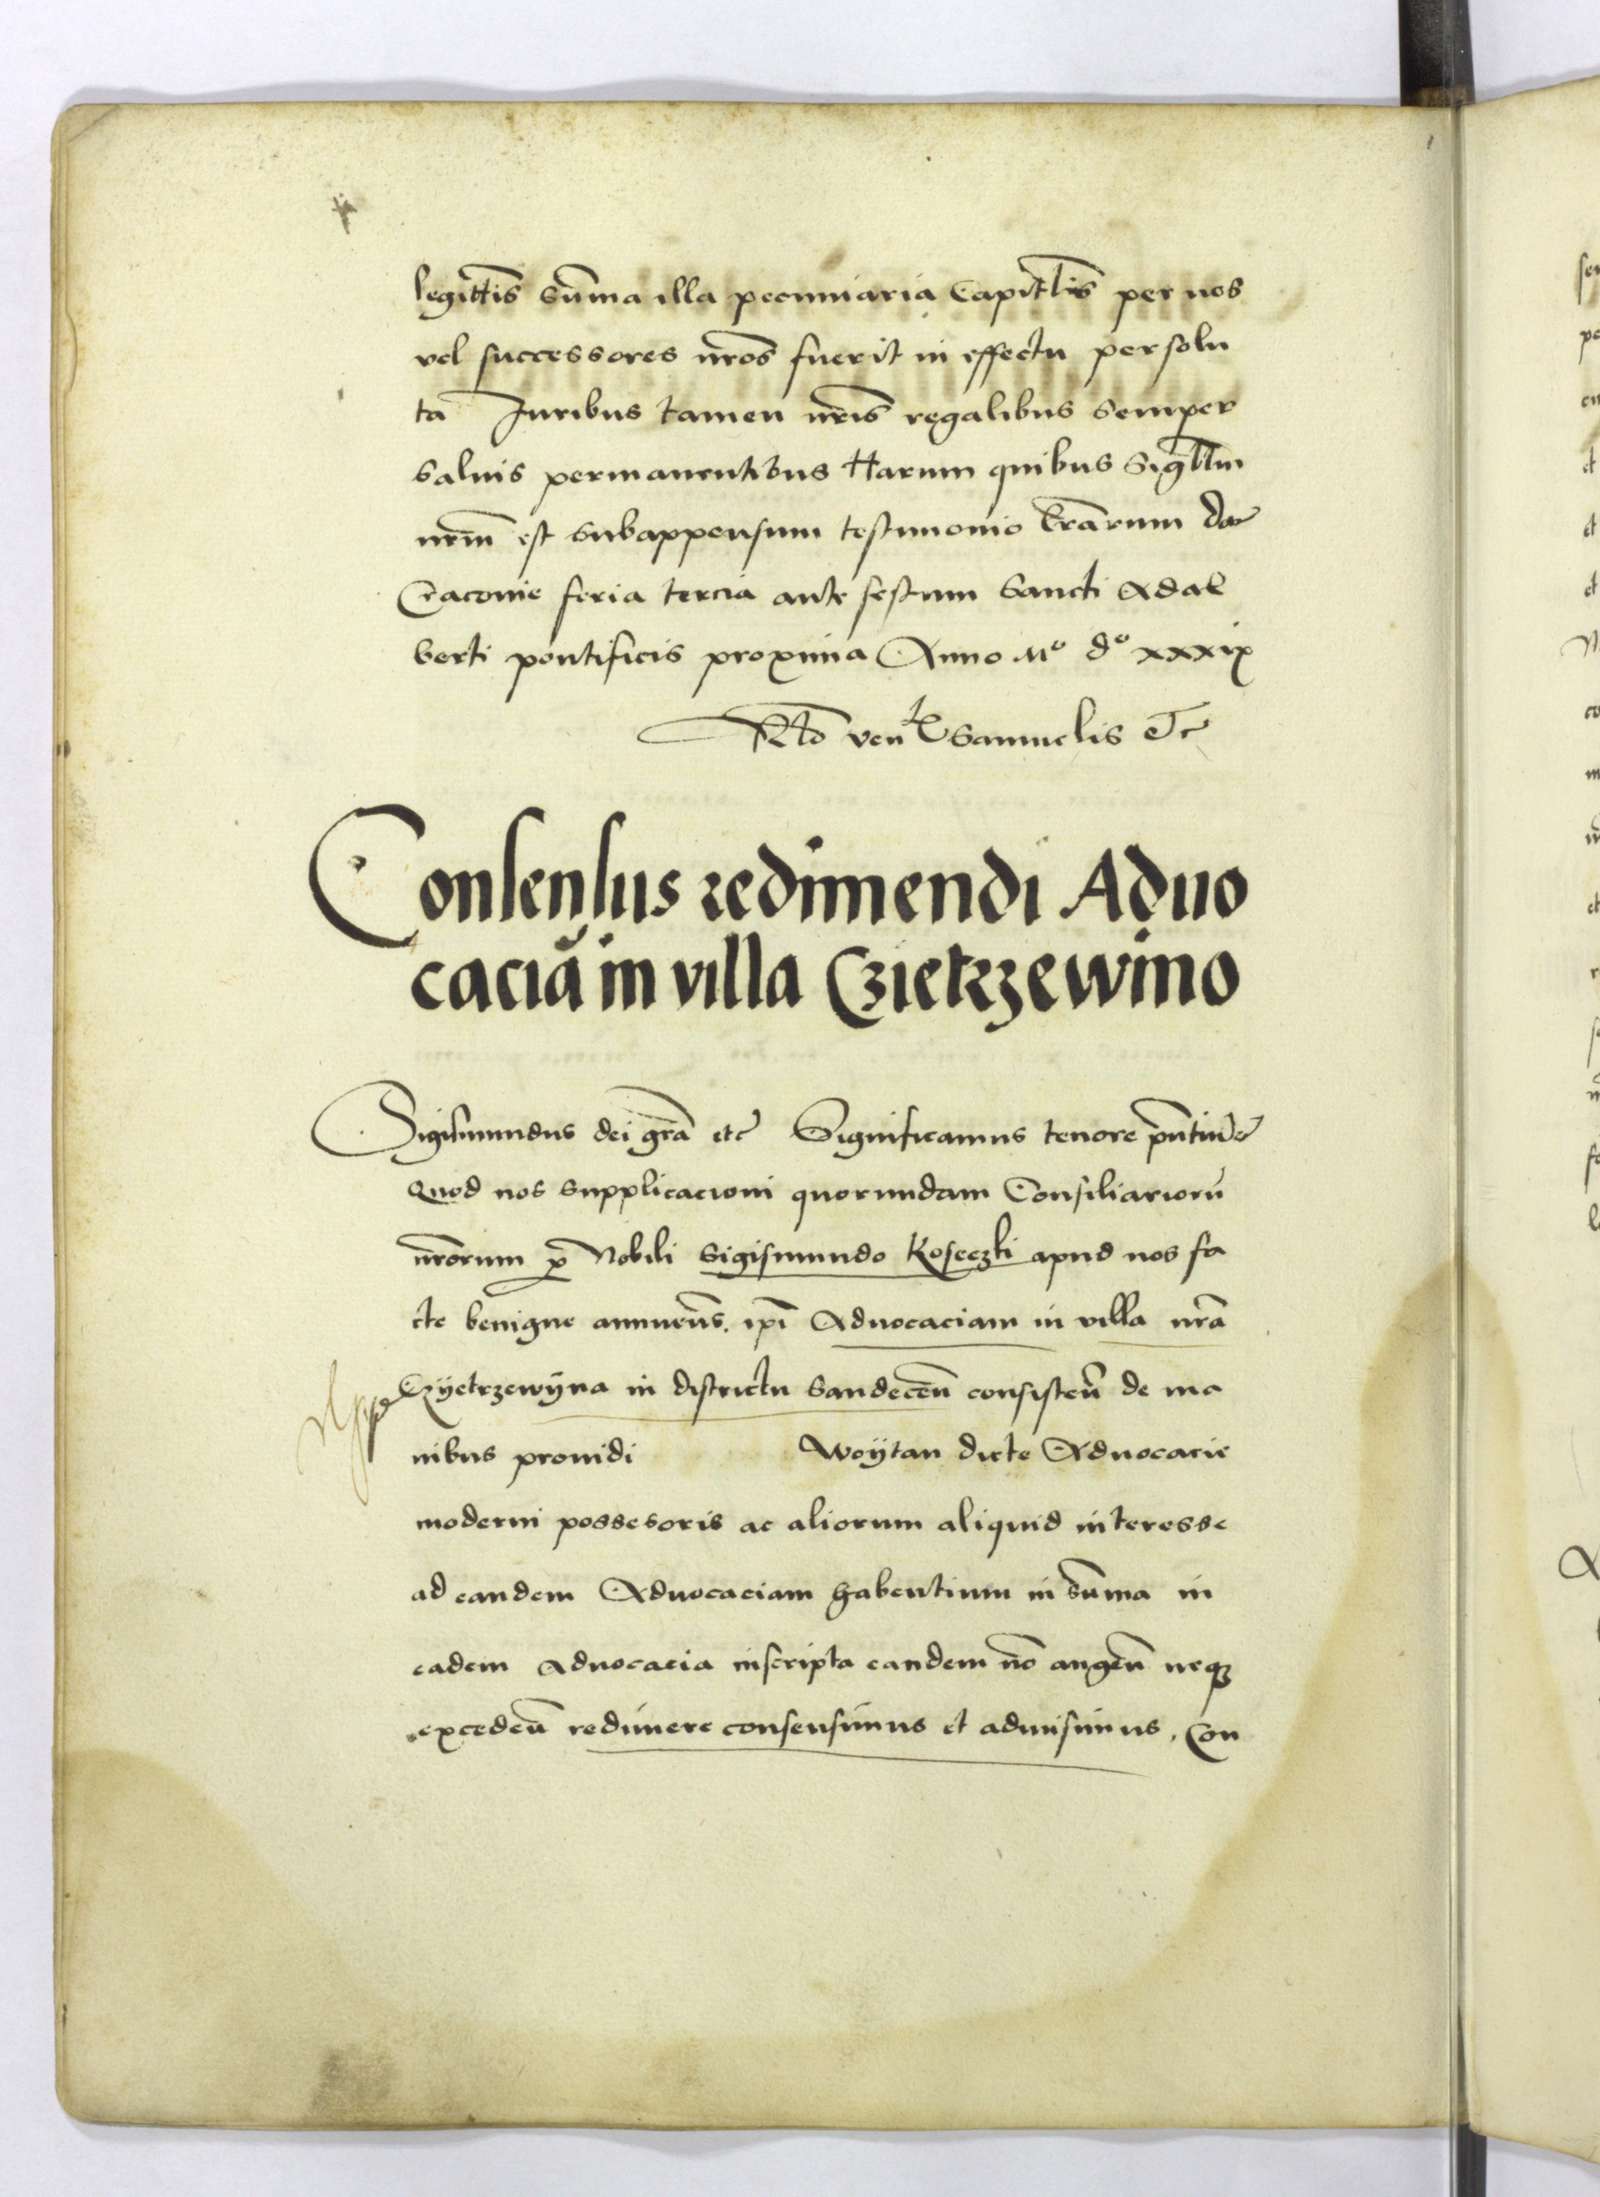 legittīs sūma illa pecuniaria Capitłis per nos
vel successores nr̄os fuerit in effectu persolu
ta Iuribus tamen nr̄is regalibus semper
saluis permanentibus Harum quibus Sigłłm
nr̄m est subappensum testimonio łrārum dat
Cracovie feria tercia ante festum Sancti Adal
berti pontificis proxima Anno Mº dº xxxix
Rtō ven Samuelis Etc
Consensus redimendi Aduo
caciā in villa Czietrzewino
Sigismundus dei grā etc Significamus tenore pn̄tiū etc
Quod nos supplicacioni quorundam Consiliariorū
nr̄orum p̱ Nobili Sigismundo Koseczki apud nos fa
cte benigne annuen̄s. ip̄i Aduocaciam in villa nrā
Czÿetrzewÿna in districtu Sandecen̄ consisten̄ de ma
nibus prouidi Woÿtan dicte Aduocacie
moderni possesoris ac aliorum aliquid interesse
ad eandem Aduocaciam habentium in sūma in
eadem Aduocacia inscripta eandem nō augen̄ neqꝫ
exceden̄ redimere consensimus et admisimus, Con